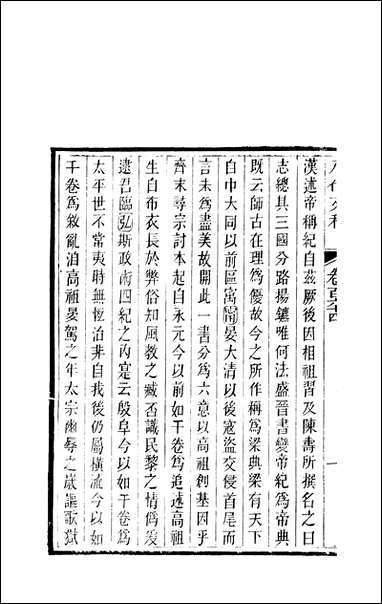 漢述帝稱紀自茲厥後因相祖習及陳壽所撰名之曰
志總其三國分路揚鑣唯何法盛晉書變帝紀爲帝典
既云師古在理爲優故今之所作稱爲梁典梁有天下
自中大同以前區寓晏大清以後寇盜交侵首尾而
言未爲盡美故開此一書分爲六意以高祖創基因乎
齊末尋宗討本起自永元今以前如干卷爲追述高祖
生自布衣長於弊俗知風教之臧否識民黎之情僞爰
逮君臨弘斯政術四紀之內寔云殷阜今以如干卷爲
太平世不常夷時無恆治非自我後仍屬橫流今以如
千卷爲敘亂洎高祖晏駕之年太宗幽辱之歲謳歌獄